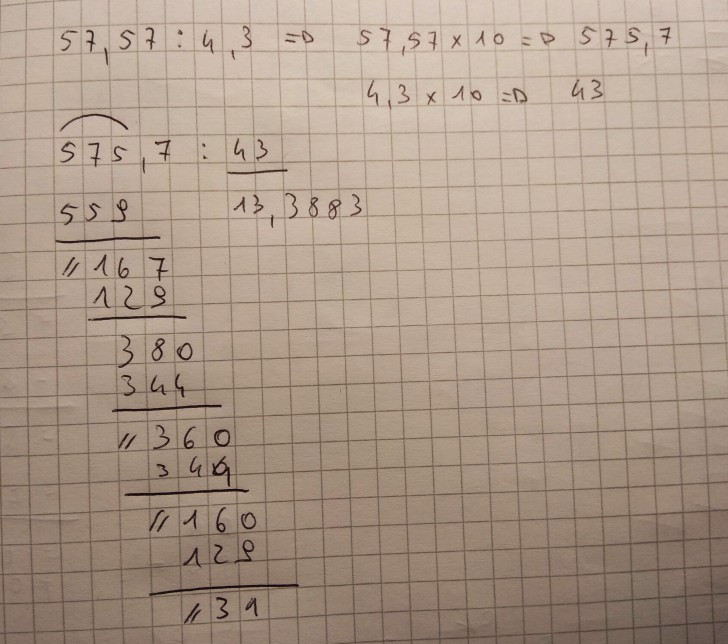 57,57 : 4,3 => 57,57 x 10 => 575,7
4,3 x 10 => 43
575,7 : 43
559 13,3883
// 167
129
380
344
// 360
344
// 160
129
// 31